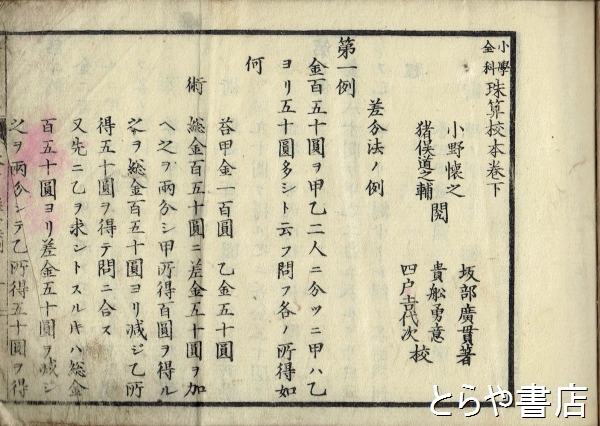 小學全科 珠算校本巻下
小野懐之
猪俣道之輔 閲
坂部廣貫著
貴舩勇意
四戸吉代次 校
差分法ノ例
第一例
金百五十圓ヲ甲乙二人ニ分ツニ甲ハ乙
ヨリ五十圓多シト云フ問フ各ノ所得如
何
荅甲金一百圓 乙金五十圓
術 総金百五十圓ニ差金五十圓ヲ加
ヘ之ヲ兩分シ甲所得百圓ヲ得ル
之ヲ総金百五十圓ヨリ減ジ乙所
得五十圓ヲ得テ問ニ合ス
又先ニ乙ヲ求ントスルキハ総金
百五十圓ヨリ差金五十圓ヲ減シ
之ヲ兩分シテ乙所得五十圓ヲ得
とらや書店